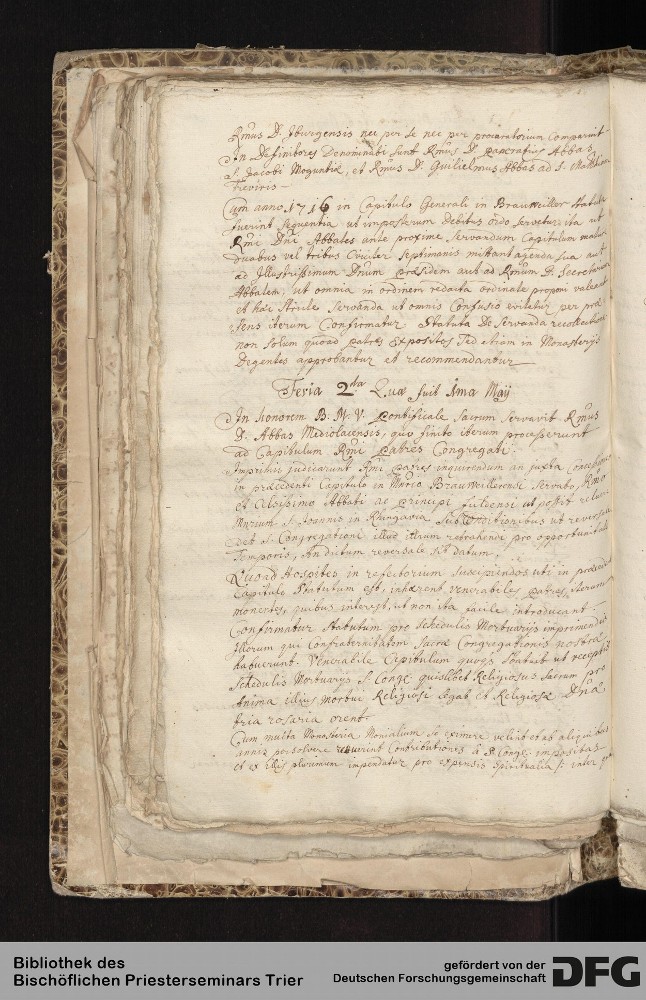 Rmus D. Iburgensis nec per se nec per procuratorium Comparuit
In Definitores Denominati sunt Rmus D. pancratius Abbas
S. Jacobi Moguntiæ, et Rmus D. Guilielmus Abbas ad S. Matthiam
Treviris
Cum anno 1716 in Capitulo Generali in Brauweiller statuta
fuerint sequentia ut imposterum debitus ordo servetur ita ut
Rmi Dni Abbates ante proxime servandum Capitulum
duobus vel tribus Circiter septimanis mittant agenda sua aut
ad Illustrissimum Dnum præsidem aut ad Rmum D. Secretarium
Abbatem, ut omnia in ordinem redacta ordinate proponi valeant
et hæc stricte servanda ut omnis Confusio evitetur per præ
sens iterum Confirmatur. Statuta De servanda recollectione
non solum quoad patres Expositos sed etiam in Monasterijs
Degentes approbantur et recommendantur
Feria 2da Quæ fuit 1ma Maij
In honorem B. M. V. Pontificale sacrum servavit Rmus
D. Abbas Mediolacensis, quo finito iterum processerunt
ad Capitulum Rmi patres Congregati.
Imprimis judicarunt Rmi patres inquirendum an juxta
in præcedenti Capitulo in Mnrio Brauweillerensi servato, Rmo
et Celsissimo Abbati ac principi fuldensi ut possit
Mnrium S. Joannis in Rhingavia sub Conditionibus ut
det S. Congregationi illud iterum retrahendi pro opportunitate
Temporis, An dictum reversale sit datum,
Quoad Hospites in refectorium suscipiendos uti in præcedenti
Capitulo statutum est, inhærent venerabiles patres, iterum
monentes, quibus interest, ut non ita facile introducant.
Confirmatur statutum pro schedulis Mortuarijs imprimendis
Illorum qui Confraternitatem sacræ Congregationis nostræ
habuerunt. Venerabile Capitulum quoque statuit ut receptis
schedulis Mortuarijs S. Congr. quislibet Religiosus sacrum pro
anima illius mortui Religiosi legat et Religiosæ
tria rosaria orent.
Cum multa Monasteria Monialium se eximere velint et ab aliquibus
annis persolvere renuerint Contributiones à S. Congr. impositas
et ex illis plurimum impendatur pro expensis spiritualia inter
Bibliothek des
Bischöflichen Priesterseminars Trier
gefördert von der
Deutschen Forschungsgemeinschaft
DFG